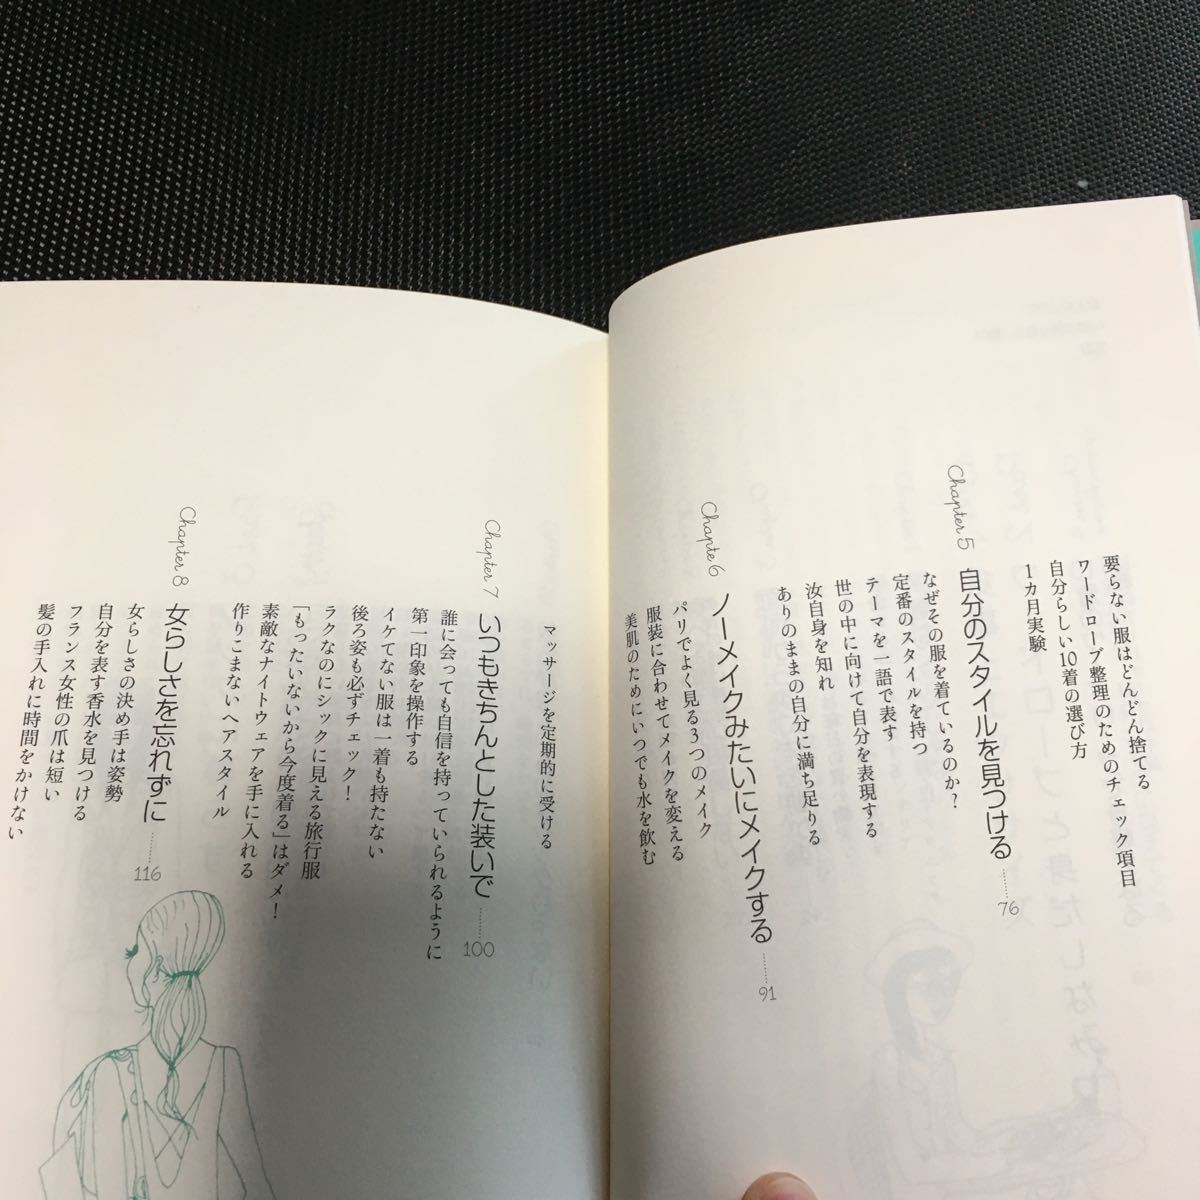 要らない服はどんどん捨てる
ワードローブ整理のためのチェック項目
自分らしい10着の選び方
1カ月実験
Chapter 5
自分のスタイルを見つける……76
なぜその服を着ているのか?
定番のスタイルを持つ
テーマを一語で表す
世の中に向けて自分を表現する
汝自身を知れ
ありのままの自分に満ち足りる
Chapte 6
ノーメイクみたいにメイクする……91
パリでよく見る3つのメイク
服装に合わせてメイクを変える
美肌のためにいつでも水を飲む
マッサージを定期的に受ける
Chapter 7
いつもきちんとした装いで……100
誰に会っても自信を持っていられるように
第一印象を操作する
イケてない服は一着も持たない
後ろ姿も必ずチェック!
ラクなのにシックに見える旅行服
「もったいないから今度着る」はダメ!
素敵なナイトウェアを手に入れる
作りこまないヘアスタイル
Chapter 8
女らしさを忘れずに……116
女らしさの決め手は姿勢
自分を表す香水を見つける
フランス女性の爪は短い
髪の手入れに時間をかけない